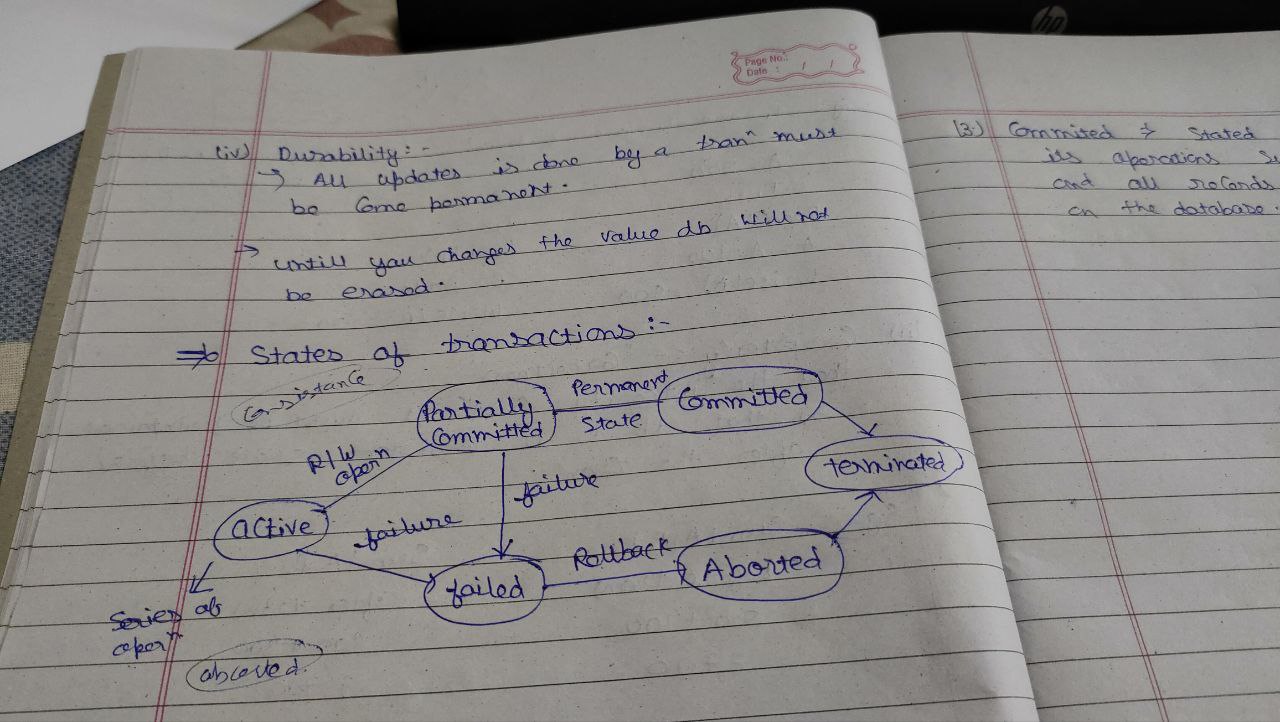 hp
Page No.:
Date : / /
(iv) Durability :-
→ All updates is done by a tranⁿ must
be come permanent.
→ untill you changes the value db will not
be erased.
⇒ States of transactions :-
Consistance
Partially
Committed
Permanent
State
Committed
terminated
R/W
operⁿ
active
failure
failure
failed
Rollback
Aborted
Series of
operⁿ
aborted
(3.) Commited → Stated
its operations Su
and all records
on the database.